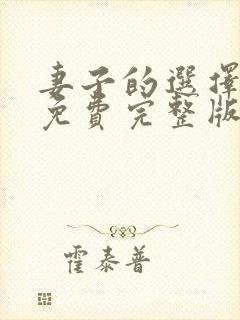 妻子的選擇
免費完整版
霍泰普